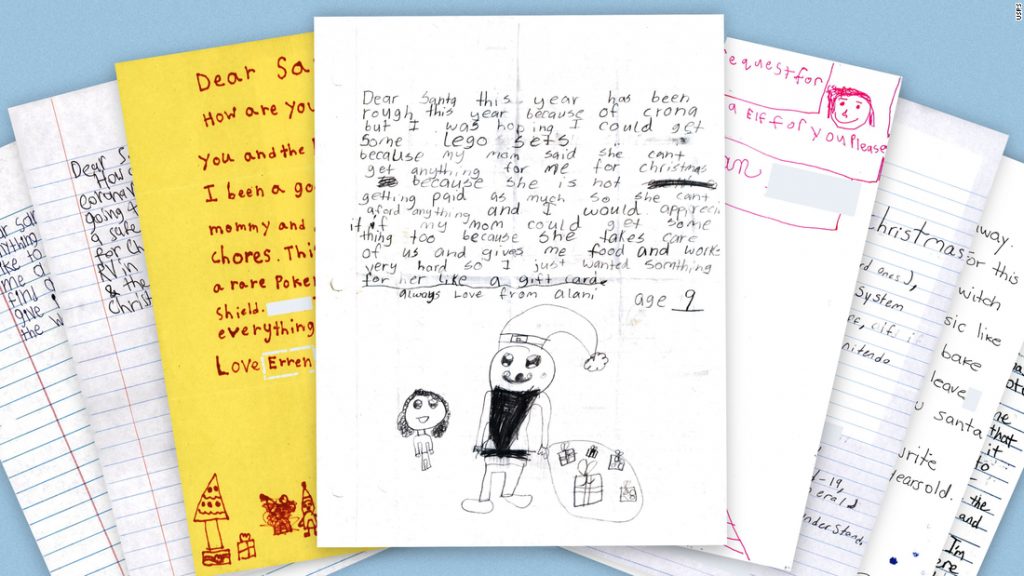 USPS
Dear Santa this year has been
rough this year because of crona
but I was hoping I could get
some lego sets
because my mom said she cant
get anything for me for christmas
because she is not
getting paid as much so she cant
aford anything and I would appreci
it if my mom could get some
thing too because she takes care
of us and gives me food and works
very hard so I just wanted somthing
for her like a gift carde
always Love from alani
age 9
Dear Sa
How are you
you and the
I been a go
mommy and
chores. Thi
a rare Poke
shield.
everything
Love Erren
Dear S
How
coronav
going t
a safe
for C
RV in
& the
Christ
equest for
a Elf of you Please
an
christmas
ones),
System
elf i
nintendo
-19,
understand
iway.
or this
witch
sic like
bake
leave
u santa
write
years old.
that
it
to
the
and
I'm